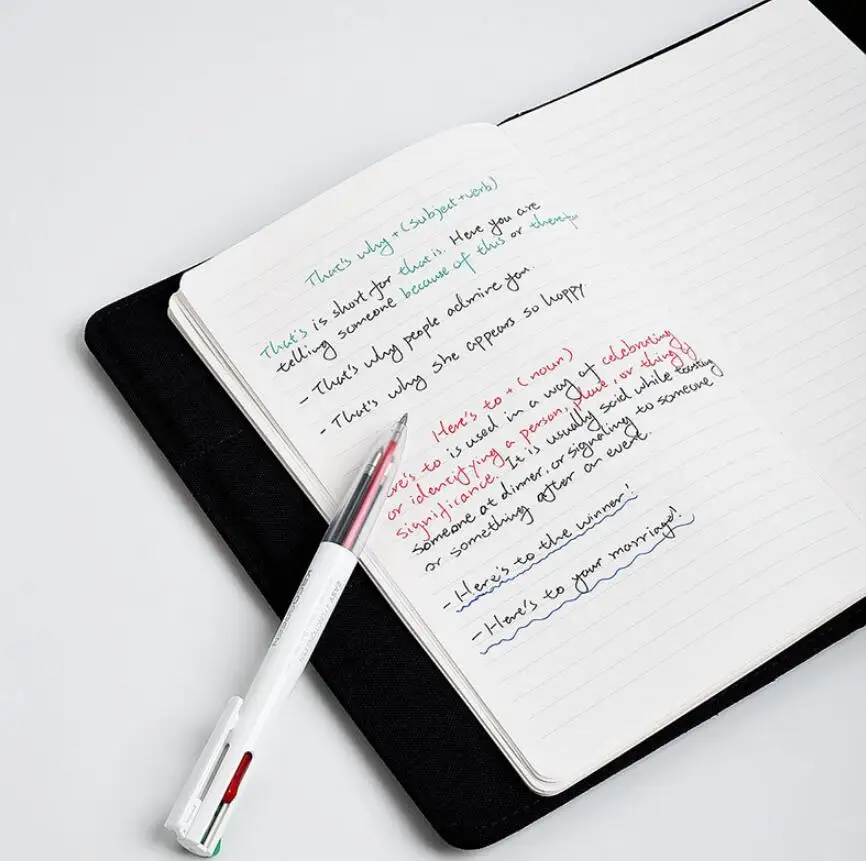 That's why + (subject+verb)
That's is short for that is. Here you are
telling someone because of this or therefor
- That's why people admire you.
- That's why she appears so happy
Here's to + (noun)
ere's to is used in a way of celebrating
or identifying a person, place, or thing's
significance. It is usually said while toasting
someone at dinner, or signaling to someone
or something after an event.
- Here's to the winner!
- Here's to your marriage!